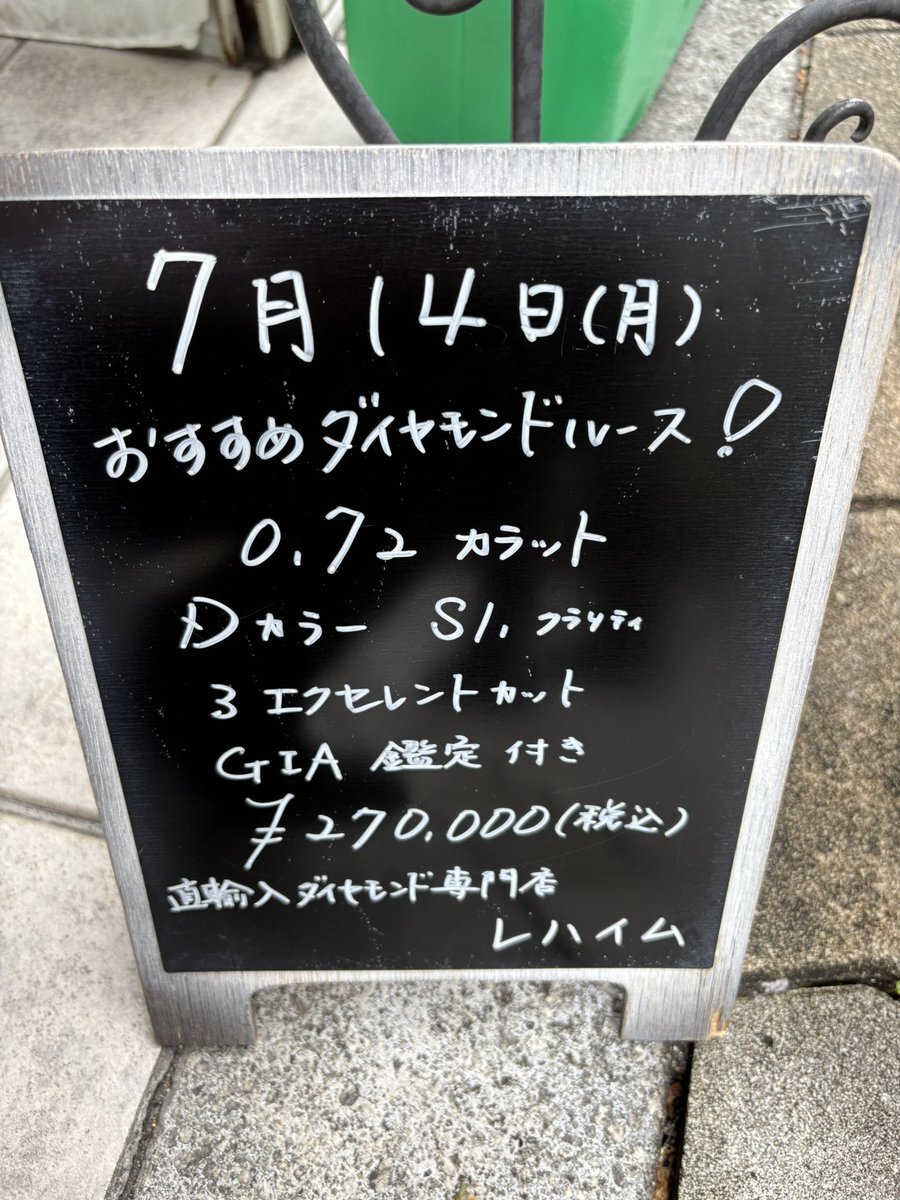 7月14日(月)
おすすめダイヤモンドルース!
0.72 カラット
Dカラー SI1 クラリティ
3 エクセレントカット
GIA 鑑定付き
¥270,000(税込)
直輸入ダイヤモンド専門店
レハイム